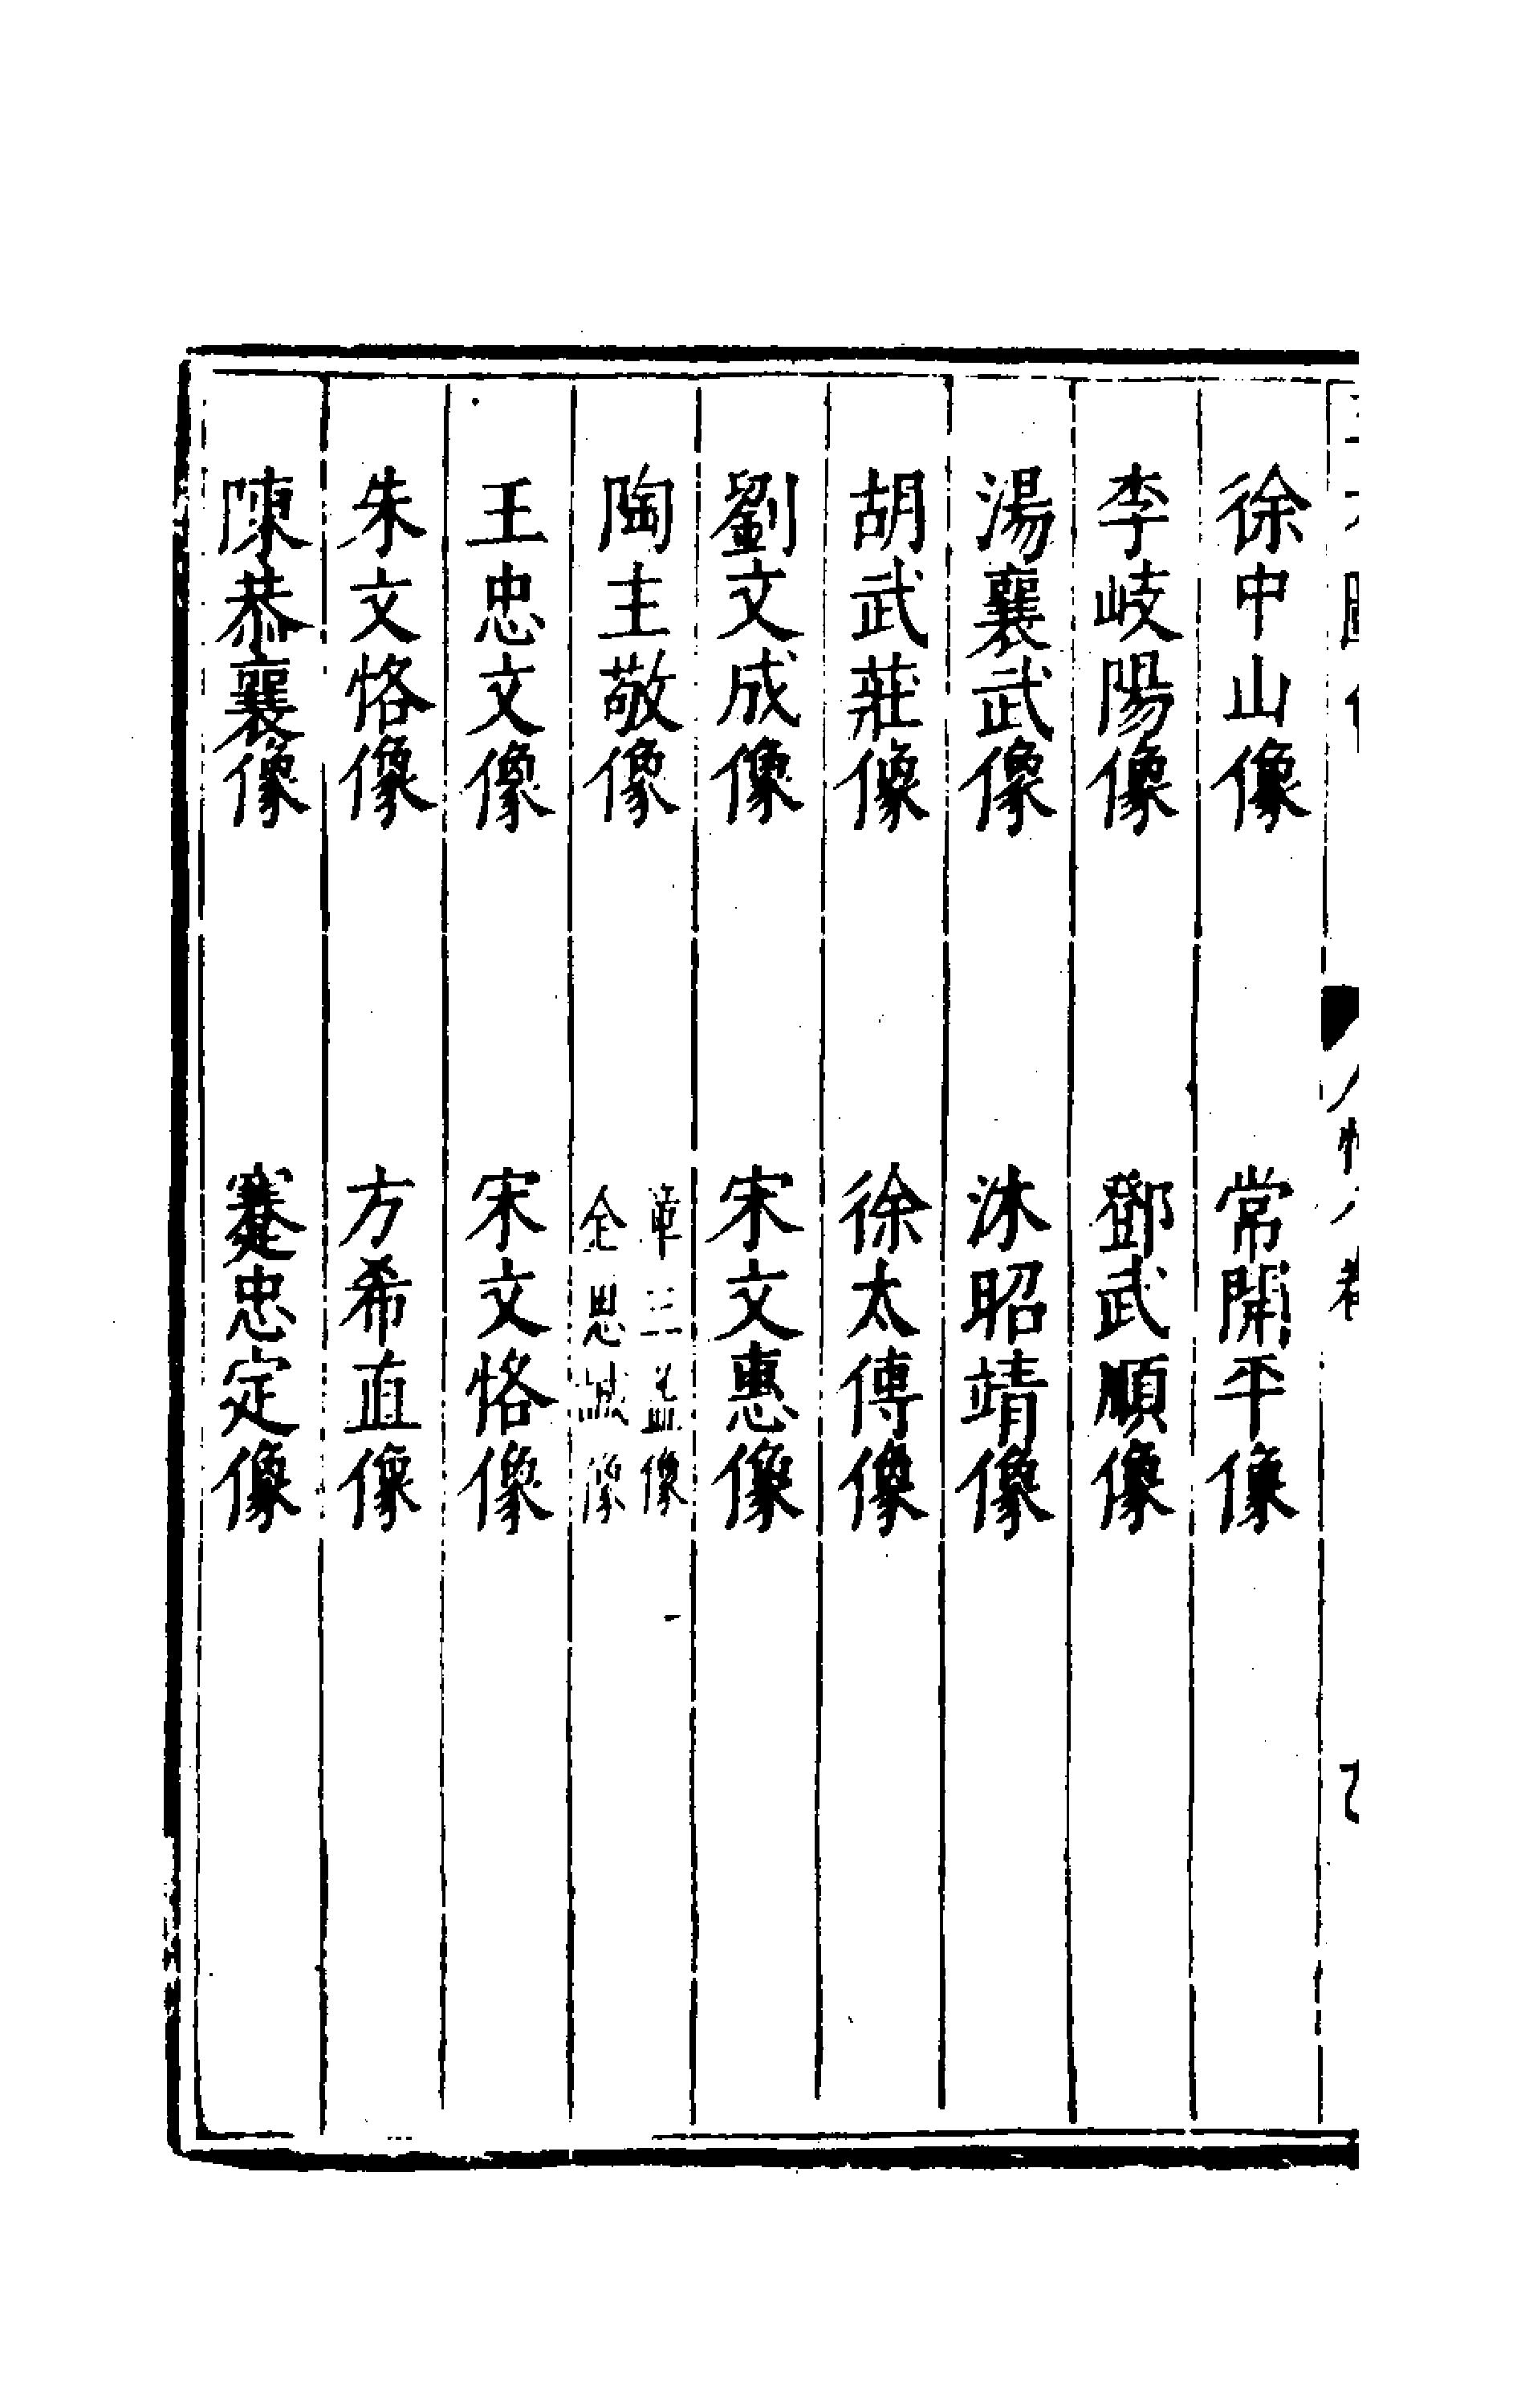 徐中山像　常開平像
李岐陽像　鄧武順像
湯襄武像　沐昭靖像
胡武莊像　徐太傅像
劉文成像　宋文惠像
陶主敬像　章三益像
全思誠像
王忠文像　宋文恪像
朱文恪像　方希直像
陳恭襄像　蹇忠定像